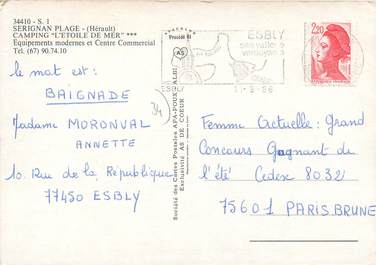 34410 - S. 1
SERIGNAN PLAGE - (Hérault)
CAMPING "L'ETOILE DE MER" ***
Equipements modernes et Centre Commercial
Tel. (67) 90.74.10
le mot est:
BAIGNADE
Madame MORONVAL
ANNETTE
10 Rue de la République
77450 ESBLY
Société des Cartes Postales APA-POUX ALBI
Exclusivité AS DE COEUR
AS
ESBLY
ses vallons
ESBLY
2,20
Femme Actuelle: Grand
Concours Gagnant de
l'été Cedex 8032
75601 PARIS BRUNE